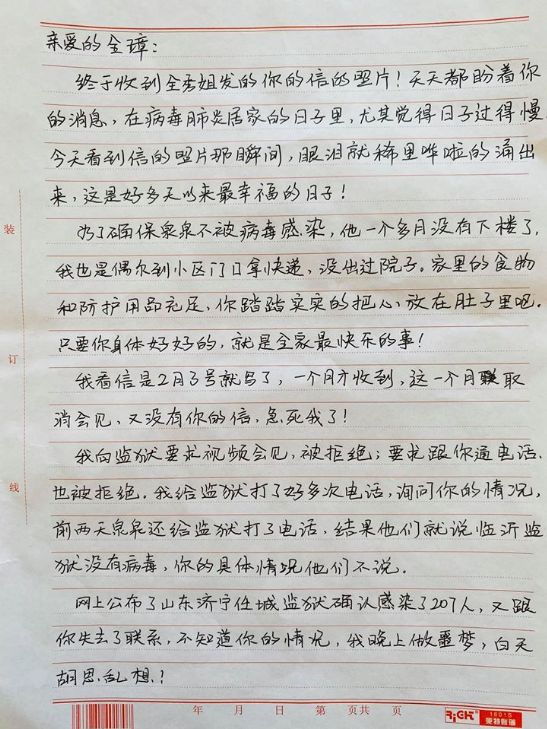 亲爱的全璋：
终于收到全秀姐发的你的信的照片！天天都盼着你
的消息，在病毒肺炎居家的日子里，尤其觉得日子过得慢。
今天看到信的照片那瞬间，眼泪就稀里哗啦的涌出
来，这是好多天以来最幸福的日子！
为了确保泉泉不被病毒感染，他一个多月没有下楼了，
我也是偶尔到小区门口拿快递，没出过院子。家里的食物
和防护用品充足，你踏踏实实的把心放在肚子里吧。
只要你身体好好的，就是全家最快乐的事！
我看信是2月3号就写了，一个月才收到，这一个月取
消会见，又没有你的信，急死我了！
我向监狱要求视频会见，被拒绝；要求跟你通电话，
也被拒绝。我给监狱打了好多次电话，询问你的情况，
前两天泉泉还给监狱打了电话，结果他们就说临沂监
狱没有病毒，你的具体情况他们不说。
网上公布了山东济宁任城监狱确认感染了207人，又跟
你失去了联系，不知道你的情况，我晚上做噩梦，白天
胡思乱想！
装
订
线
年 月 日 第 页共 页
16015